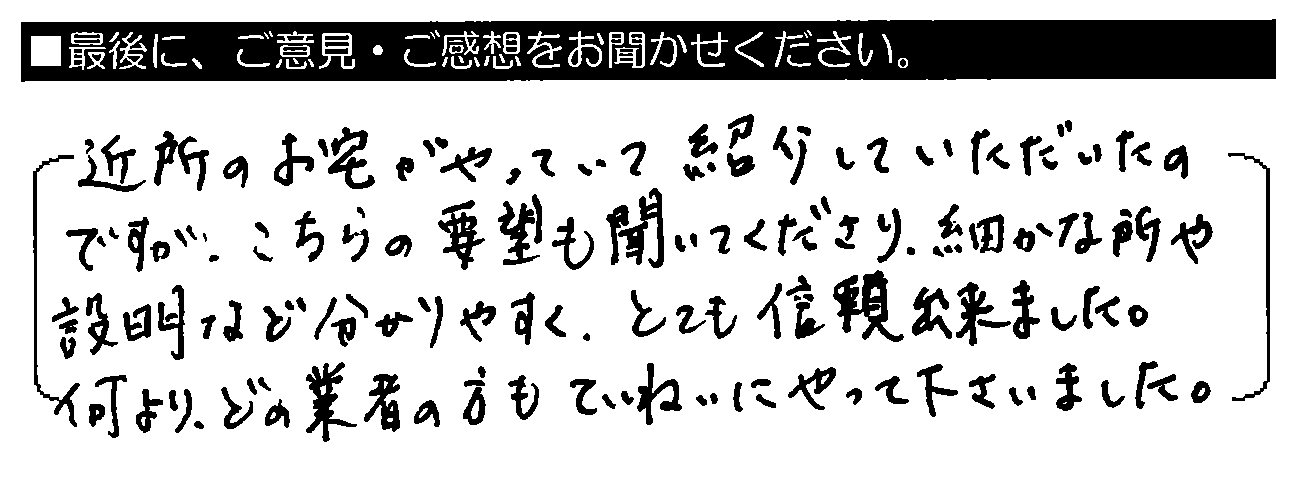 ■最後に、ご意見・ご感想をお聞かせください。
近所のお宅がやっていて紹介していただいたの
ですが、こちらの要望も聞いてくださり、細かな所や
説明など分かりやすく、とても信頼出来ました。
何より、どの業者の方もていねいにやって下さいました。